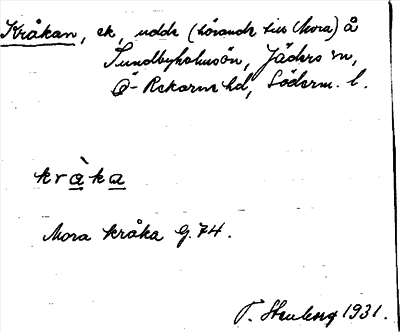 Kråkan, ek, udde (hörande till Mora) å
Sundbyholmsön, Jäders sn,
Ö-Rekarne hd, Söderm. l.
kràka
Mora kråka G. 74.
T. Stenberg 1931.